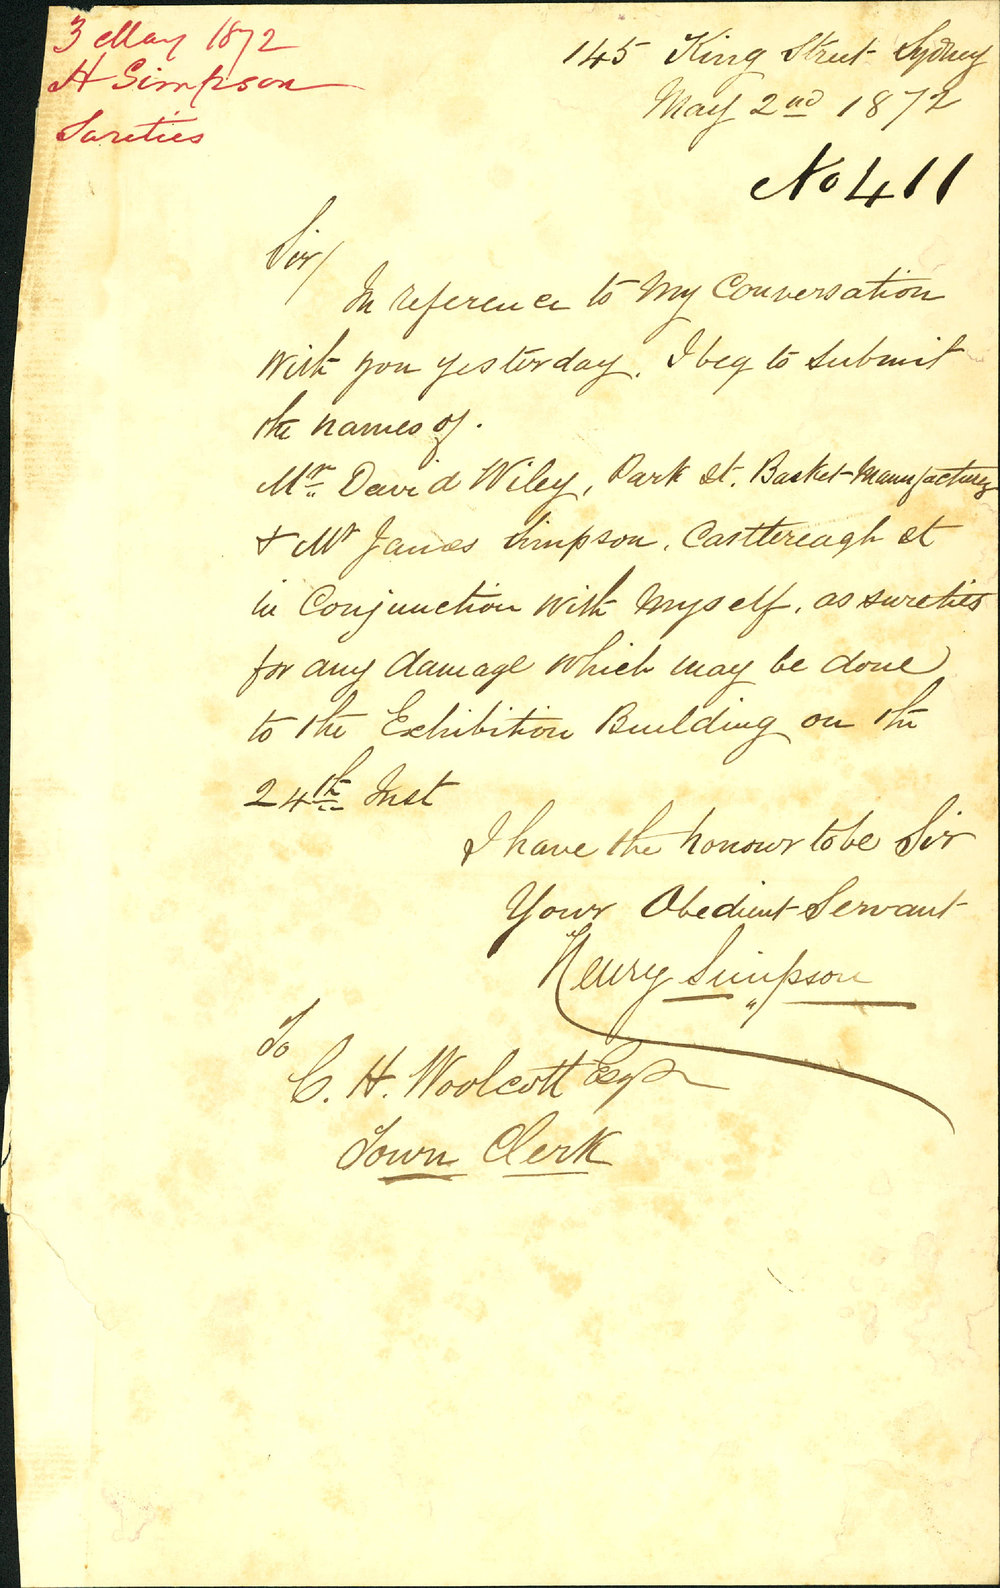 3 May 1872
H Simpson
Sureties
145 King Street Sydney
May 2nd 1872
No 411
Sir/
In reference to My Conversation
With you yesterday. I beg to submit
the names of.
Mr. David Wiley, Park St. Basket-Manufacturer
& Mr James Simpson. Casttereagh St
in Conjunction with Myself. as sureties
for any damage which may be done
to the Exhibition Building on the
24th Inst
I have the honour to be Sir
Your Obedient Servant
Henry Simpson
To
C. H. Woolcott Esqr
Town Clerk